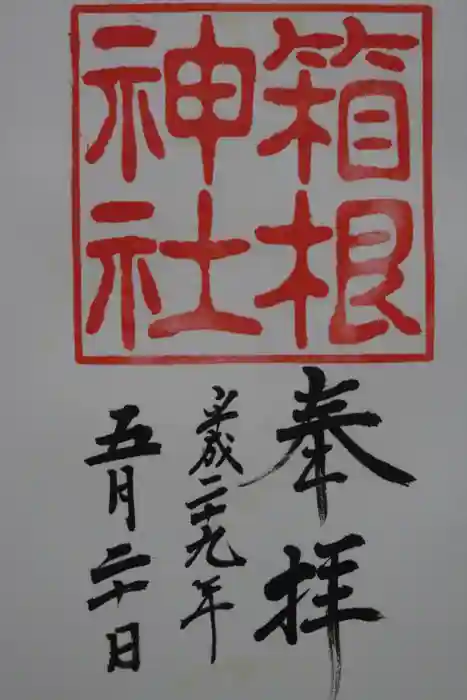 箱根
神社
奉拝
平成二十九年
五月二十日